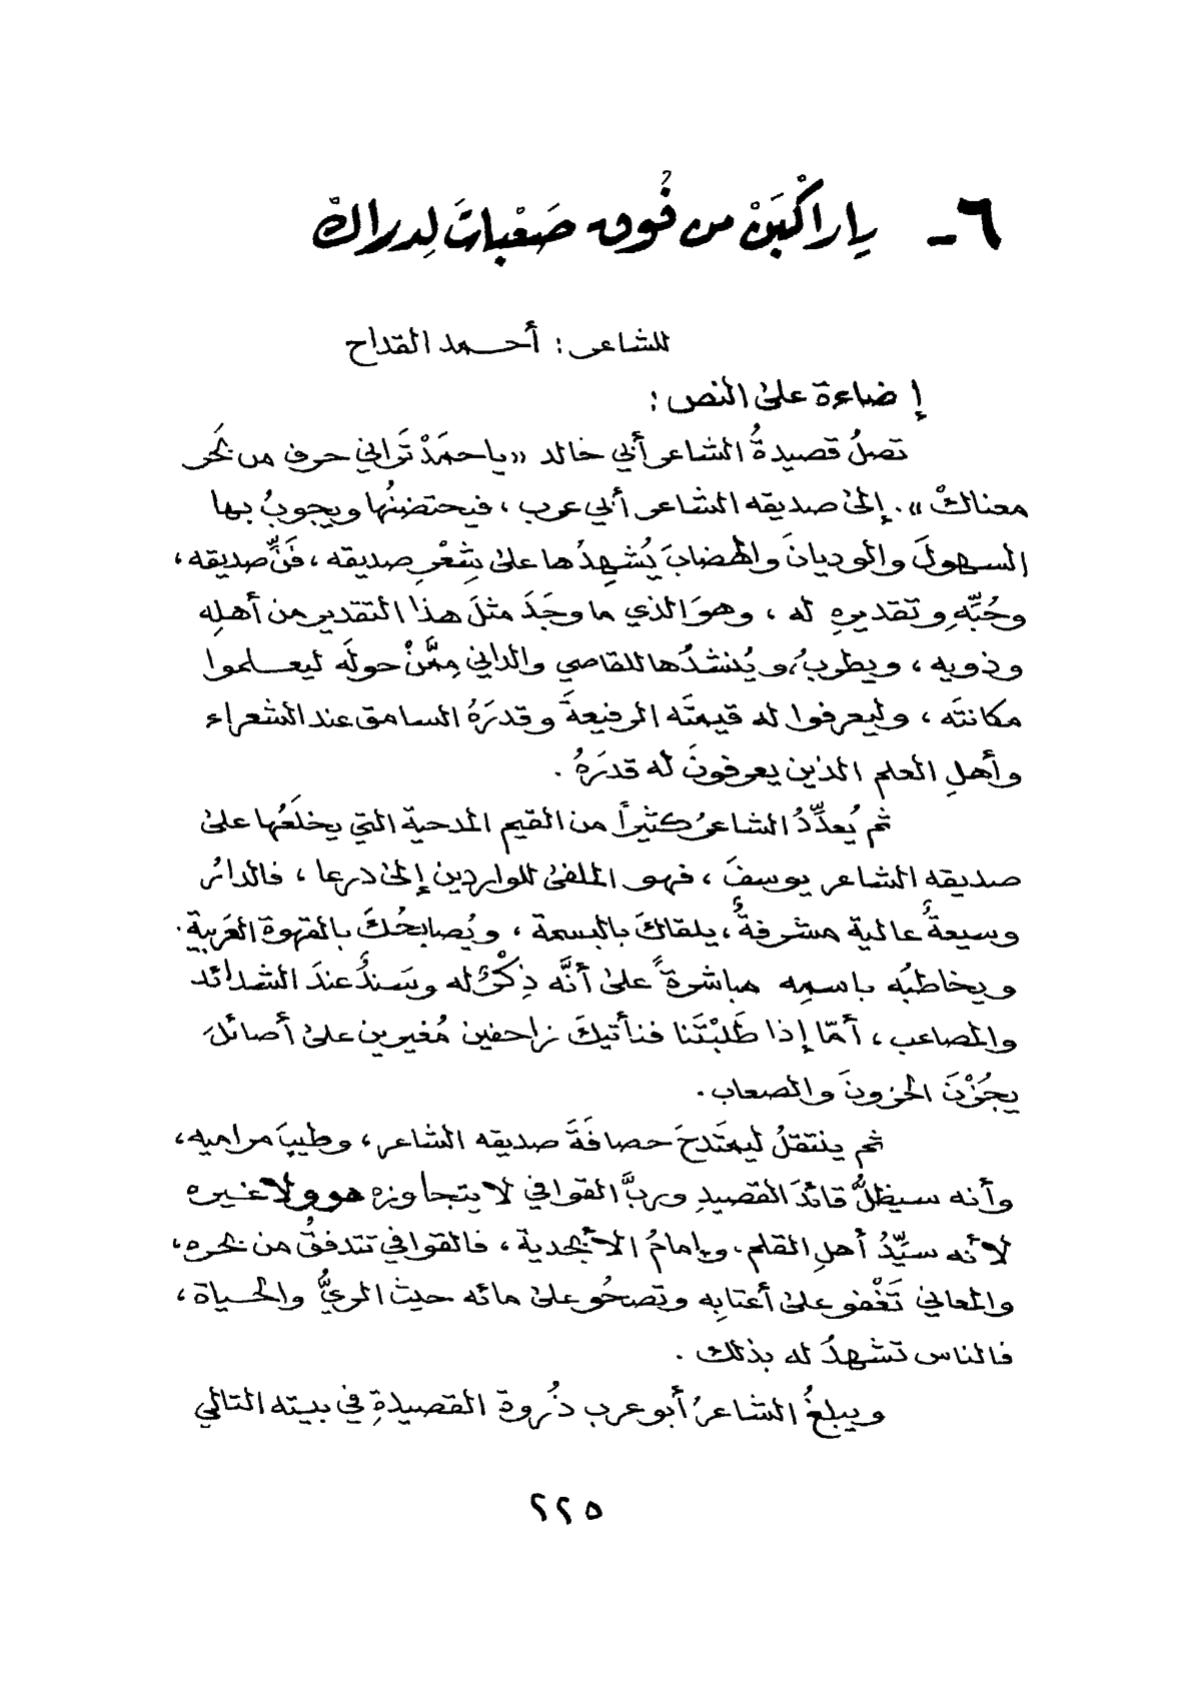 ٦- ياراكْبَنْ من فُوق صَعْباتَ لِدراكْ
للشاعر : أحمد القداح
إضاءة على النص :
تصلُ قصيدةُ الشاعر أبي خالد «ياحمَدْ تَراني حرف من بَحَر
معناكْ». إلى صديقه الشاعر أبي عرب ، فيحتضنُها ويجوبُ بها
السهولَ والوديانَ والهضابَ يُشهِدُها على شِعْرِ صديقه ، فَنِّ صديقه ،
وحُبِّهِ وتقديرهِ له ، وهوَ الذي ما وجَدَ مثلَ هذا التقدير من أهلِهِ
وذويه ، ويطربُ، ويُنشدُها للقاصي والداني مِمَّنْ حولَه ليعلموا
مكانتَه ، وليعرفوا له قيمتَه الرفيعةَ وقدرَهُ السامق عند الشعراء
وأهلِ العلم الذين يعرفونَ له قدرَهُ .
ثم يُعدِّدُ الشاعرُ كثيراً من القيم المدحية التي يخلَعُها على
صديقه الشاعر يوسفَ ، فهو الملفى للواردين إلى درعا ، فالدائرُ
وسيعةٌ عالية مشرفةٌ ، يلقاكَ بالبسمة ، ويُصابحُكَ بالقهوة العَربيةِ .
ويخاطبُه باسمِه مباشرةً على أنَّه ذِكْرىً له وسَندٌ عندَ الشدائد
والمصاعب ، أمّا إذا طَلبْتَنا فنأتيكَ زاحفين مُغيرين على أصائلَ
يجُزْنَ الحزونَ والصعاب .
ثم ينتقلُ ليمتَدحَ حصافَةَ صديقه الشاعر ، وطيبَ مراميه ،
وأنه سيظلُّ قائدَ القصيدِ وربَّ القوافي لا يتجاوزه هو ولا غيره
لأنه سيِّدُ أهلِ القلم . وإمامُ الأبجدية ، فالقوافي تتدفقُ من بحره ،
والمعاني تَغْفو على أعتابِه وتصحُو على مائه حيثُ الريُّ والحياة ،
فالناس تشهدُ له بذلك .
ويبلغُ الشاعرُ أبو عرب ذُروة القصيدةِ في بيته التالي
٢٢٥